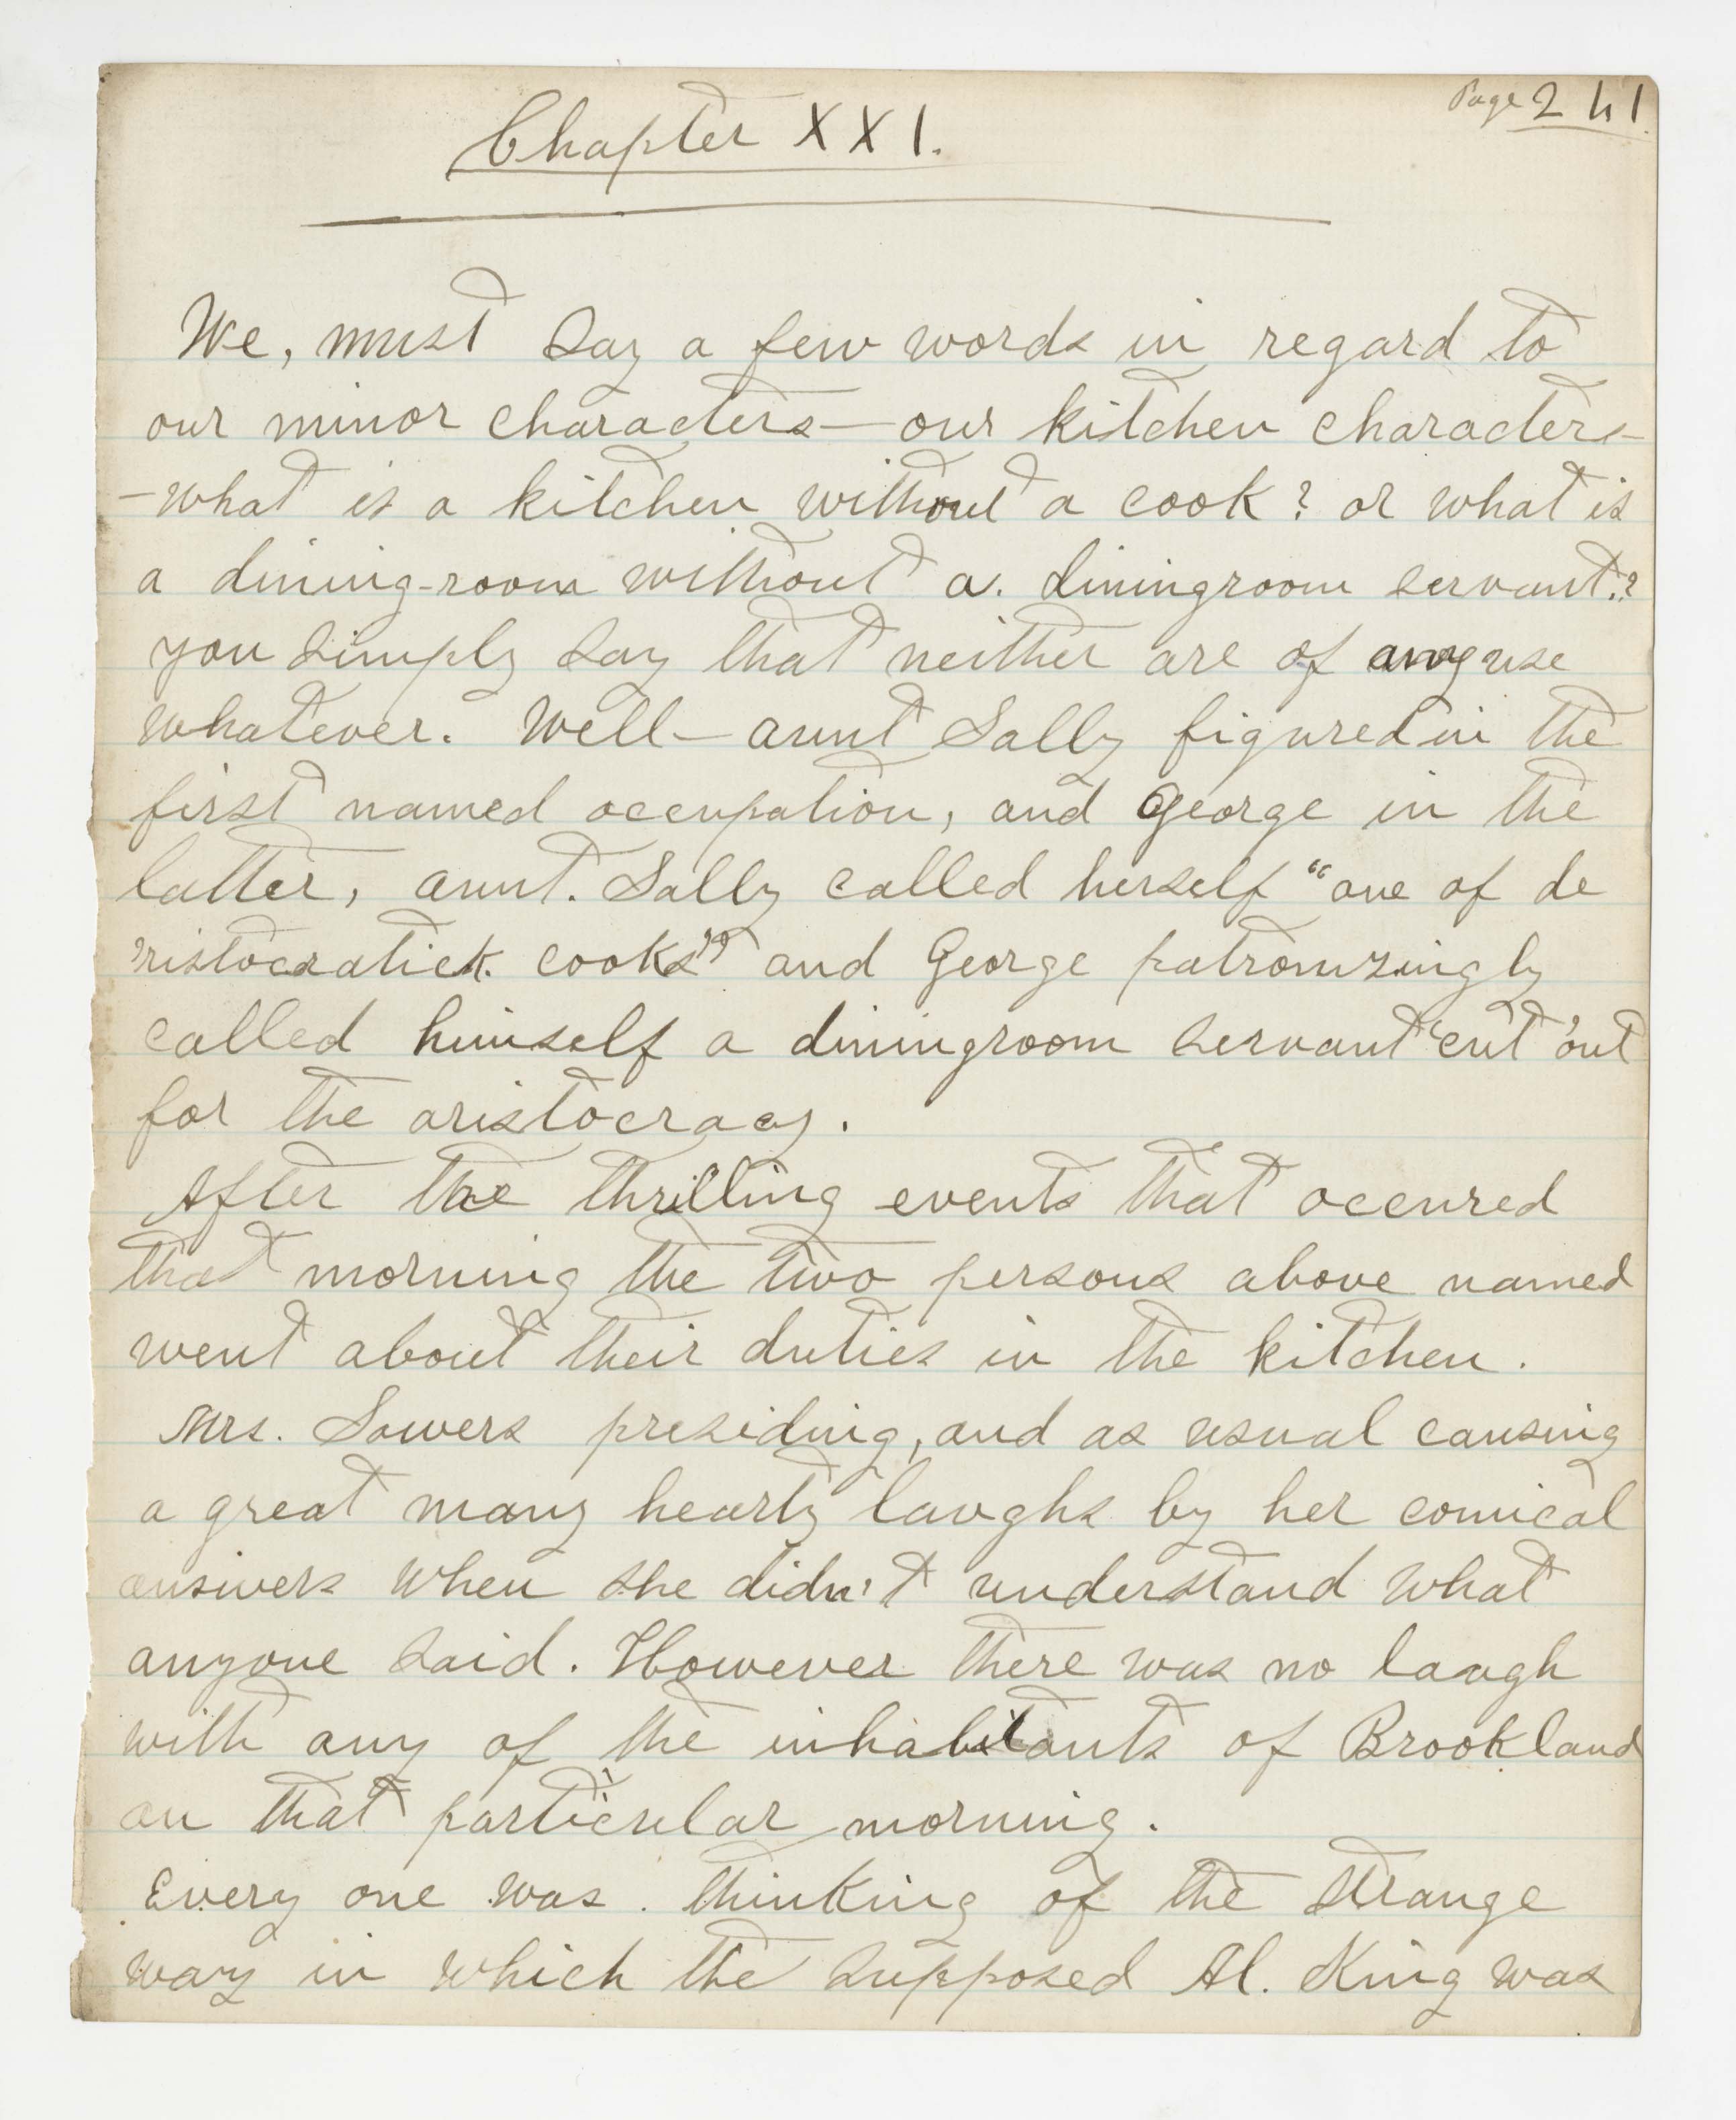 Page 241
Chapter XXI.
We, must say a few words in regard to
our minor characters—our kitchen characters—
—what is a kitchen without a cook? or what is
a dining-room without a. diningroom servant.?
you simply say that neither are of any use
whatever. Well—aunt Sally figured in the
first named occupation, and George in the
latter, aunt. Sally called herself "one of de
'ristocratick cooks" and George patronizingly
called himself a diningroom servant 'cut out'
for the aristocracy.
After the thrilling events that occured
that morning the two persons above named
went about their duties in the kitchen.
Mrs. Sowers presiding, and as usual causing
a great many hearty laughs by her comical
answers when she didn't understand what
anyone said. However there was no laugh
with any of the inhabitants of Brookland
on that particular morning.
Every one was. thinking of the strange
way in which the supposed Al. King was